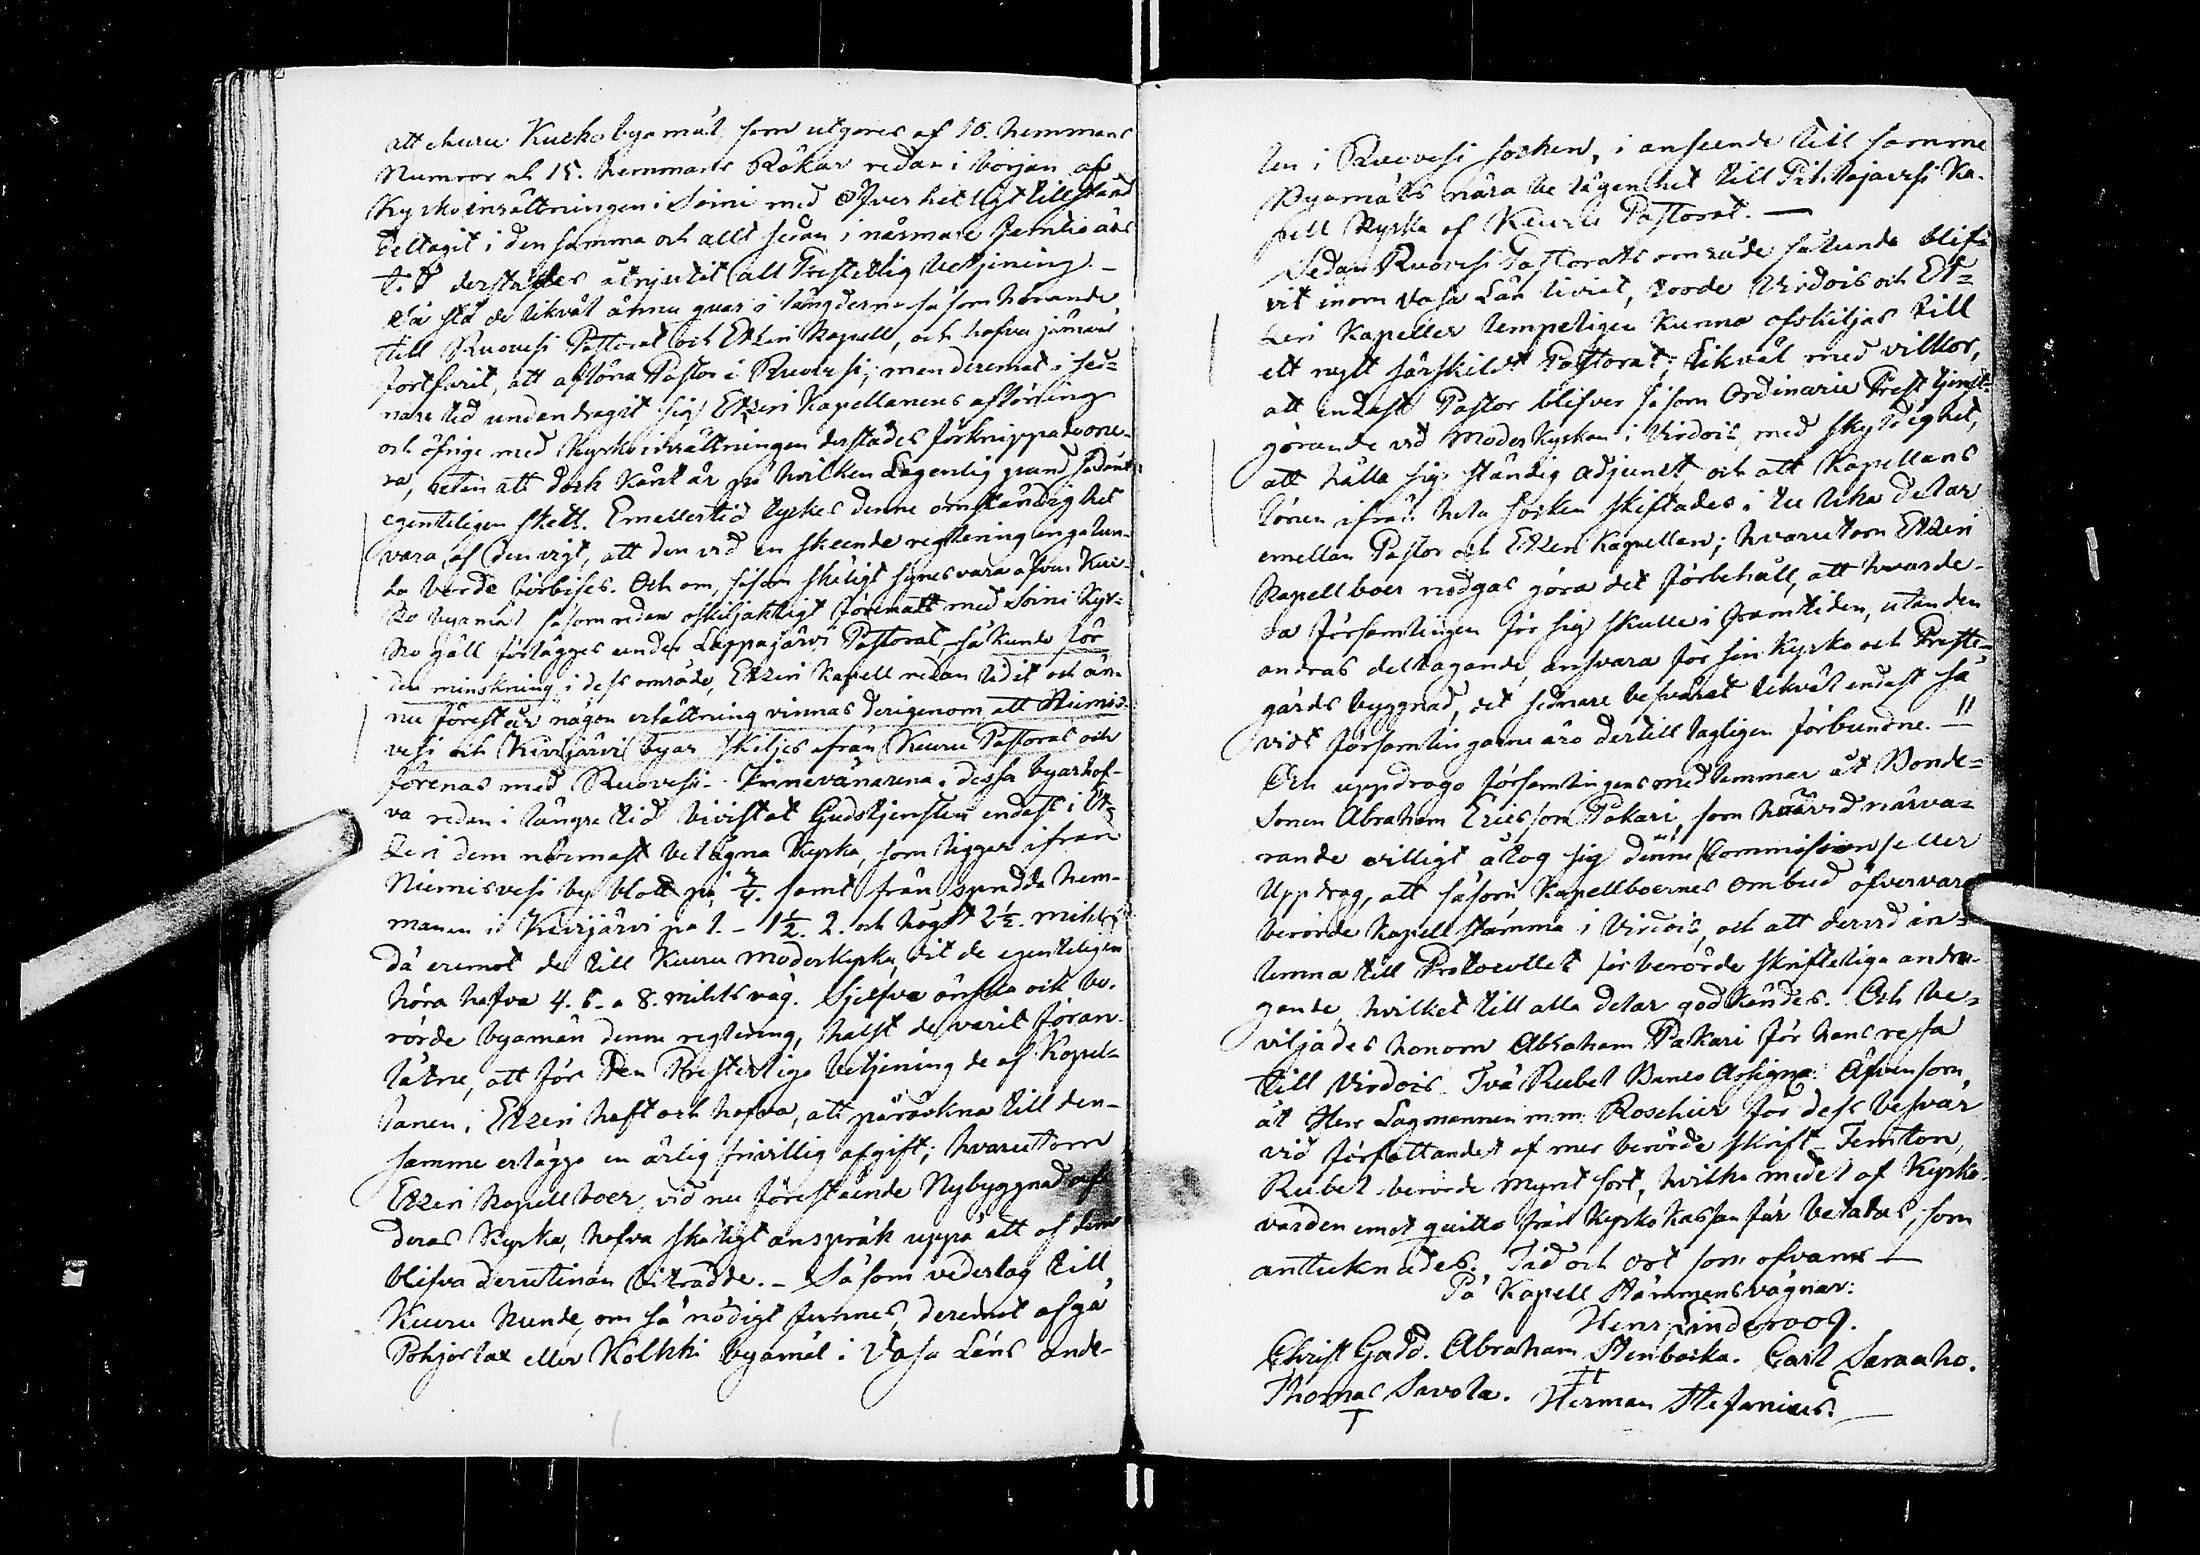 att ehuru Kuckobyamål, som utgöres af 10. hemmans
Numror och 15. hemmans Rökar redan i början af
Kyrkoinrättningen i Soini med Öfverhetligt tillstånd
deltagit i den samma och allt sedan i närmare femtio års
tid derstädes åtnjutit all Presterlig betjening. –
Så stå de likväl ännu qvar i längderne såsom hörande
till Ruovesi Pastorat och Etzeri Kapell, och hafva jämväl
fortfarit, att aflöna Pastor i Ruovesi; men deremot i sed-
nare tid undandragit sig Etzeri Kapellanens aflöning
och öfrige med Kyrkoinrättningen derstädes förknippade one-
ra, utan att dock känt är på hvilken Lagenlig grund sådant
egenteligen skett. Emellertid tyckes denne omständighet
vara af den vigt, att den vid en skeende reglering ingalun-
da borde förbises. Och om, såsom skäligt synes vara
byamål såsom redan oskiljaktligt förenadt med Soini Kyr-
ko gäll förlägges under Lappajärvi Pastorat – så kunde för
den minskning i dess område, Etzeri Kapell redan lidit och än-
nu förestår någon ersättning vinnas derigenom att Niemis-
vesi och Kivijärvi byar skiljes ifrån Kuuru Pastorat och
förenas med Ruovesi. – Innevånarena i dessa byar haf-
va redan i längre tid bivistat Gudstjensten endast i Et-
zeri dem närmast belägna Kyrka, som ligger ifrån
Niemisvesi by blott på ¾. samt från spridda hem-
manen i Kivijärvi på 1. – 1½. 2. och högst 2½. mihls
då eremot de till Kuuru Moderkyrka, dit de egenteligen
höra hafva 4. 6. a 8. mihls väg. Sjelfve önska ock be-
rörde byamän denne reglering, hälst de varit föran-
låtne, att för den Presterliga betjening de af Kapel-
lanen i Etzeri haft och hafva, att påräkna till den-
samme erlägga en årlig frivillig afgift; hvarutom
Etzeri Kapellboer, vid nu förestående Nybyggnad af
deras Kyrka, hafva skäligt anspråk uppå att af dem
blifva derutinan biträdde. – Såsom vederlag till
Kuuru kunde, om så nödigt funnes, deremot afgå
Pohjoslax eller Kolkki byamål i Vasa Läns ande-
len i Ruovesi socken, i anseende till samme
Byamåls nära belägenhet till Pihlajavesi Ka-
pell Kyrka af Keuru Pastorat. —
Sedan Ruovesi Pastorats område sålunda blifi-
vit inom Vasa Län, torde Virdois och Et-
zeri Kapeller lempeligen kunna afskiljas till
ett nytt särskildt Pastorat; likväl med villkor,
att endast Pastor blifver såsom Ordinarie Prest tjenst-
görande vid Moderkyrkan i Virdois, med skyldighet,
att hålla sig ständig adjunct, och att Kapellans
lönen ifrån hela socken skiftades i tu lika delar
emellan Pastor och Etzeri Kapellan; hvarutom Etzeri
Kapellboer nödgas göra det förbehåll, att hvarde-
ra församlingen för sig skulle i framtiden, utan den
andras deltagande, ansvara för sin Kyrko och Preste-
gårds byggnad, det sednare besväret likväl endast så
vidt församlingarne äro dertill lagligen förbundne. —"
Och uppdrogo församlingens medlemmar åt Bonde-
Sonen Abraham Ericsson Pakari, som härvid närva-
rande villigt åtog sig denne Commission eller
Uppdrag, att såsom Kapellboernes ombud öfvervara
berörde Kapell stämma i Virdois, och att dervid in-
lemna till Protocollet förberörde skrifteliga andra-
gande, hvilket till alla delar godkändes. Och be-
viljades honom Abraham Pakari för hans resa
till Virdois Två Rubel Banco Assigna: Äfvensom
åt Herr Lagmannen m.m. Roschier för dess besvär
vid författandet af mer berörde skrift – Femton
Rubel berörde Mynt sort, hvilka medel af Kyrko-
värden emot quitto från Kyrko Kassan får betalas, som
antecknades. Tid och ort som ofvan. —
På Kapell stämmans vägnar:
Henr. Linderoog.
Christ Gadd. Abraham Stenbacka. Carl Saraaho.
Thomas Savola. Herman Stefanius.